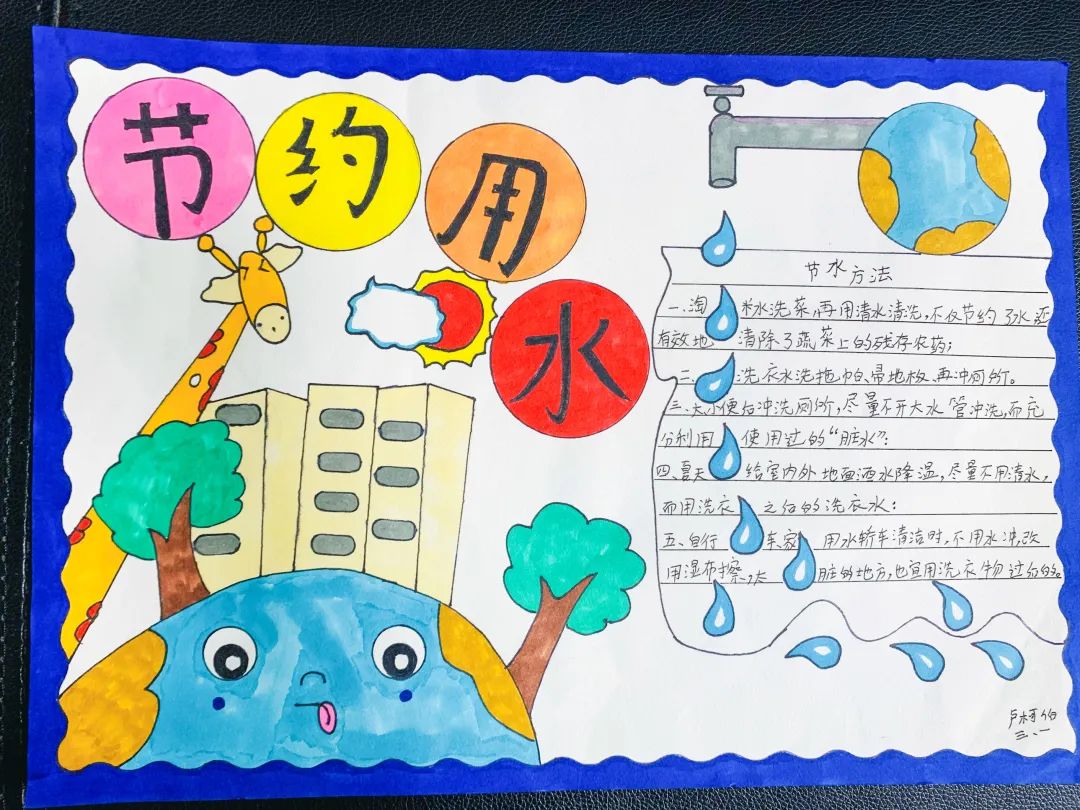 节约用水
节水方法
一、淘 米水洗菜,再用清水清洗,不仅节约了水还
有效地 清除了蔬菜上的残存农药;
二、洗衣水洗拖帕、帚地板、再冲厕所。
三、大小便后冲洗厕所,尽量不开大水管冲洗,而充
分利用 使用过的“脏水”;
四、夏天 给室内外地面洒水降温,尽量不用清水,
而用洗衣 之后的洗衣水;
五、自行 车,家 用水轿车清洁时,不用水冲,改
用湿布擦,太 脏的地方,也宜用洗衣物过后的。
三、一